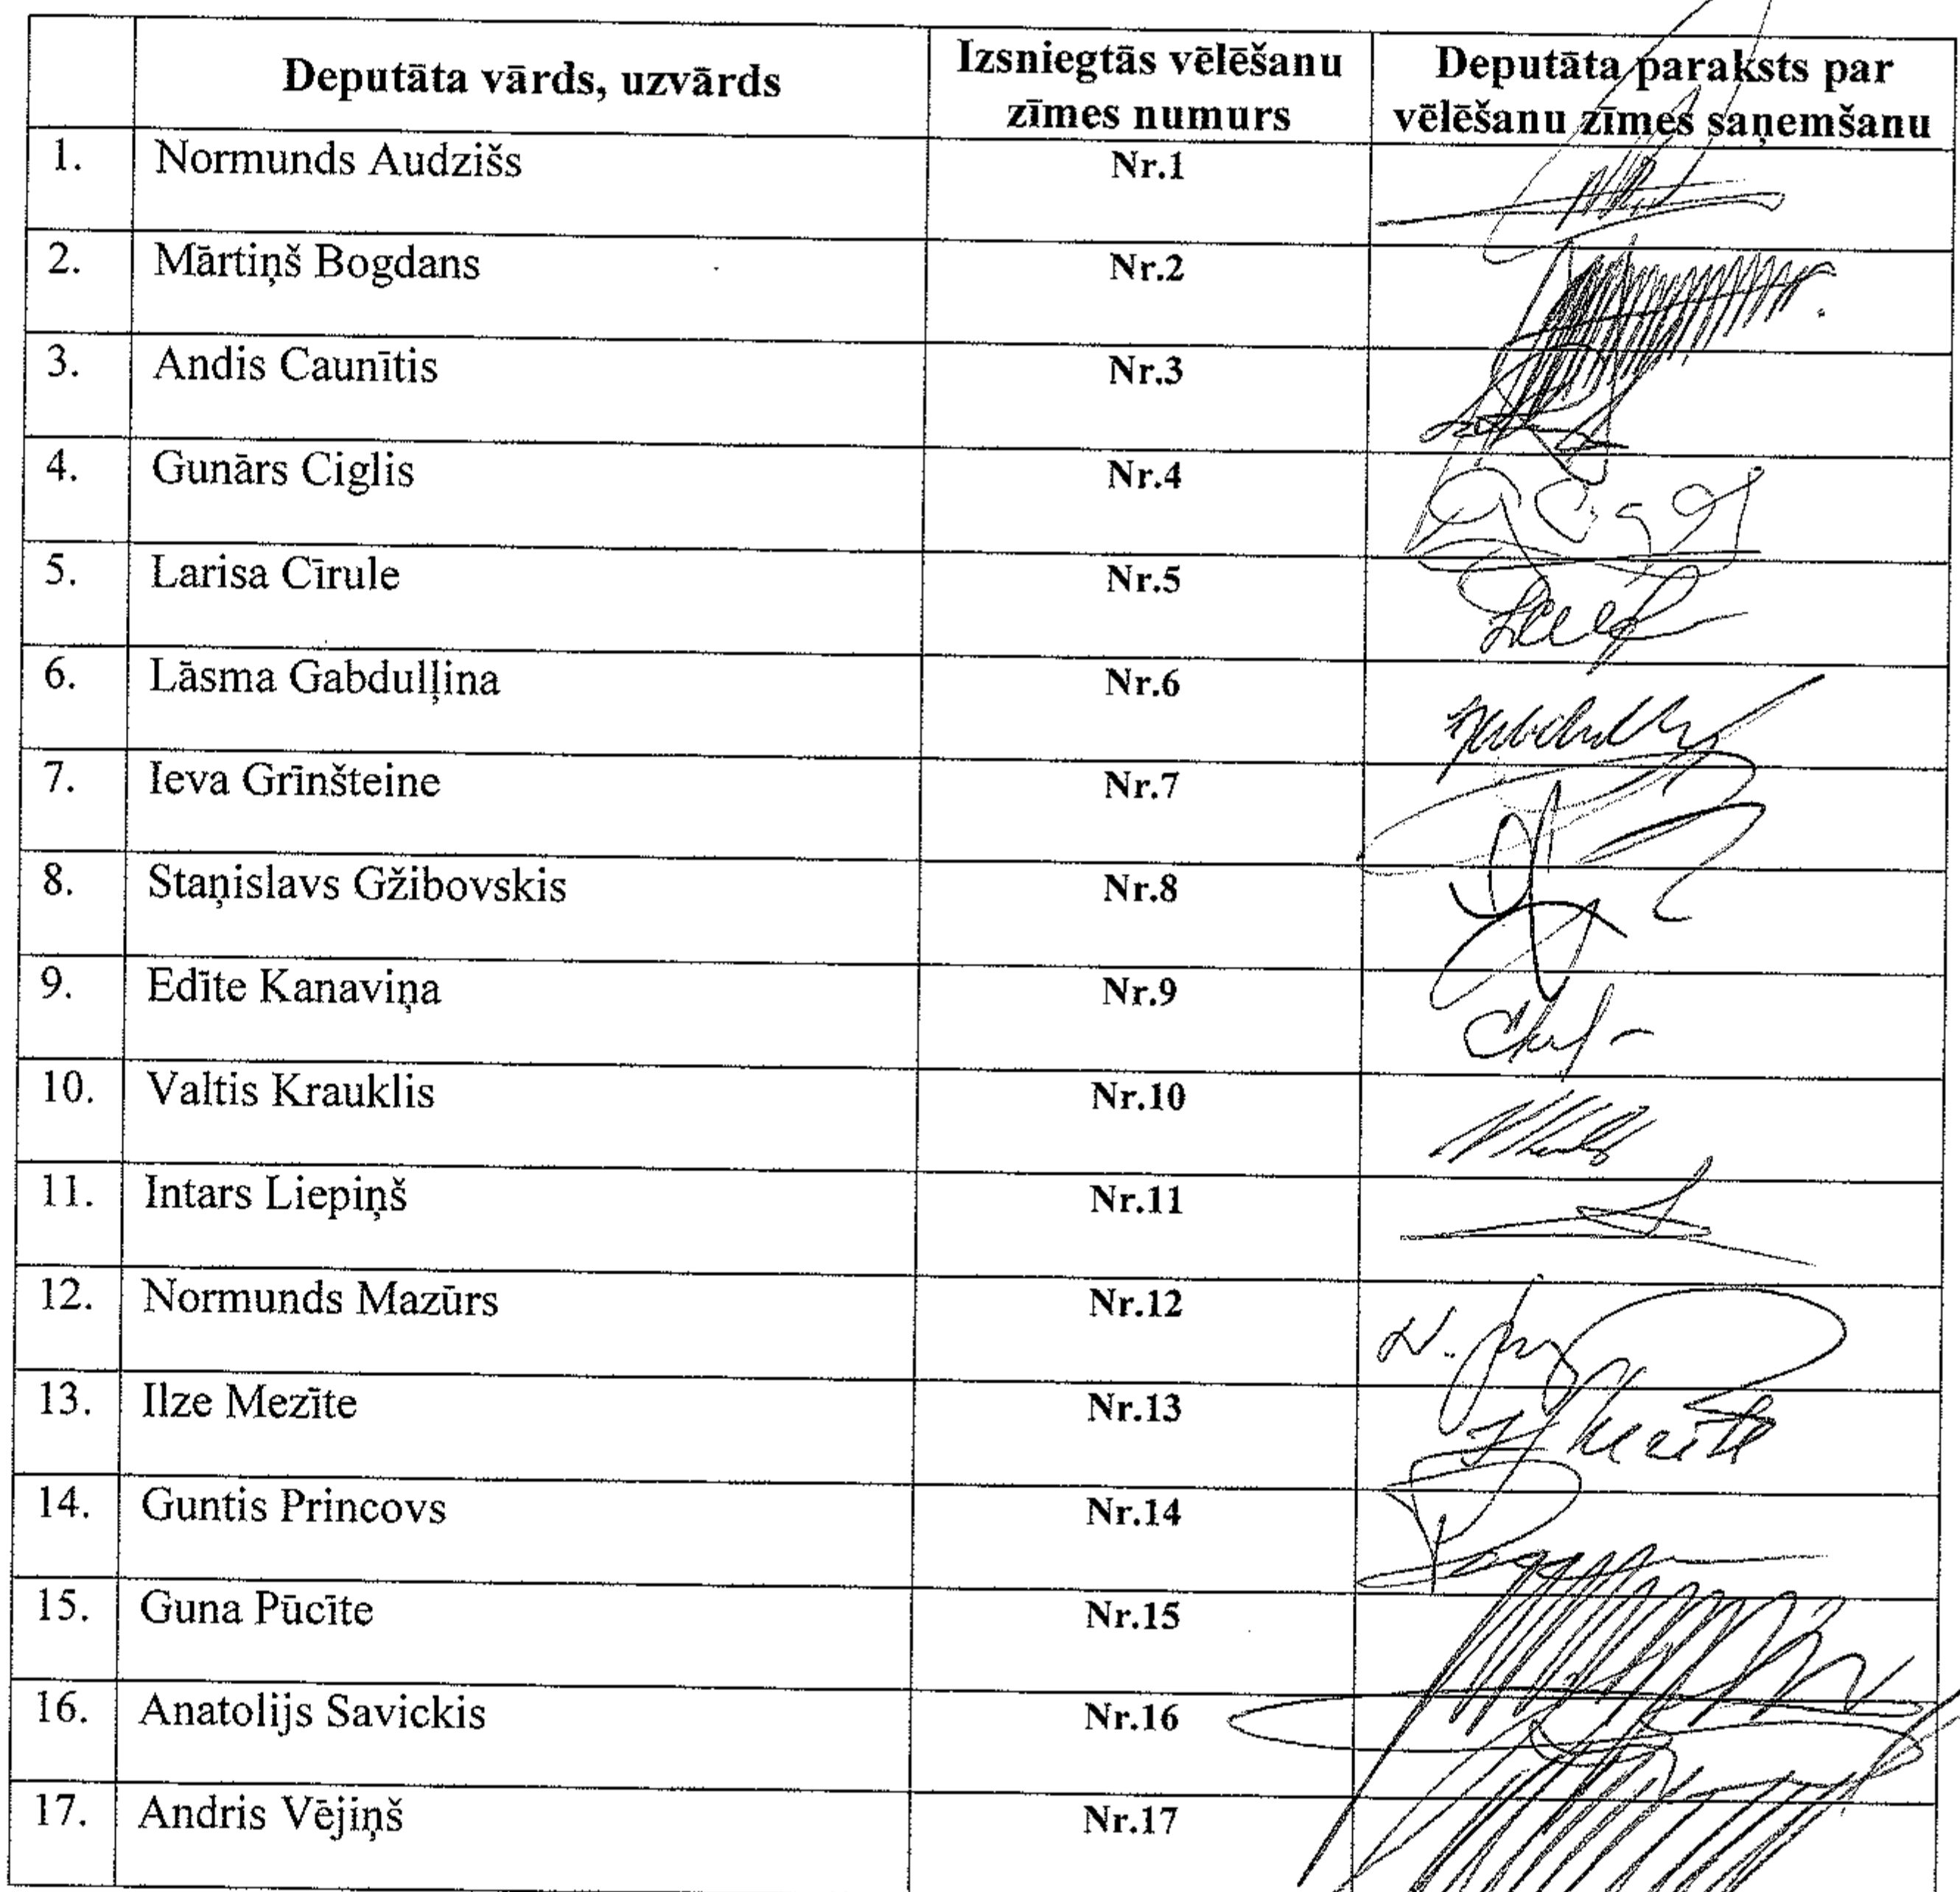 Deputāta vārds, uzvārds
Izsniegtās vēlēšanu
zīmes numurs
Deputāta paraksts par
vēlēšanu zīmes saņemšanu
1. Normunds Audzišs Nr.1
2. Mārtiņš Bogdans Nr.2
3. Andis Caunītis Nr.3
4. Gunārs Ciglis Nr.4
5. Larisa Cīrule Nr.5
6. Lāsma Gabduļļina Nr.6
7. Ieva Grīnšteine Nr.7
8. Staņislavs Gžibovskis Nr.8
9. Edīte Kanaviņa Nr.9
10. Valtis Krauklis Nr.10
11. Intars Liepiņš Nr.11
12. Normunds Mazūrs Nr.12
13. Ilze Mezīte Nr.13
14. Guntis Princovs Nr.14
15. Guna Pūcīte Nr.15
16. Anatolijs Savickis Nr.16
17. Andris Vējiņš Nr.17